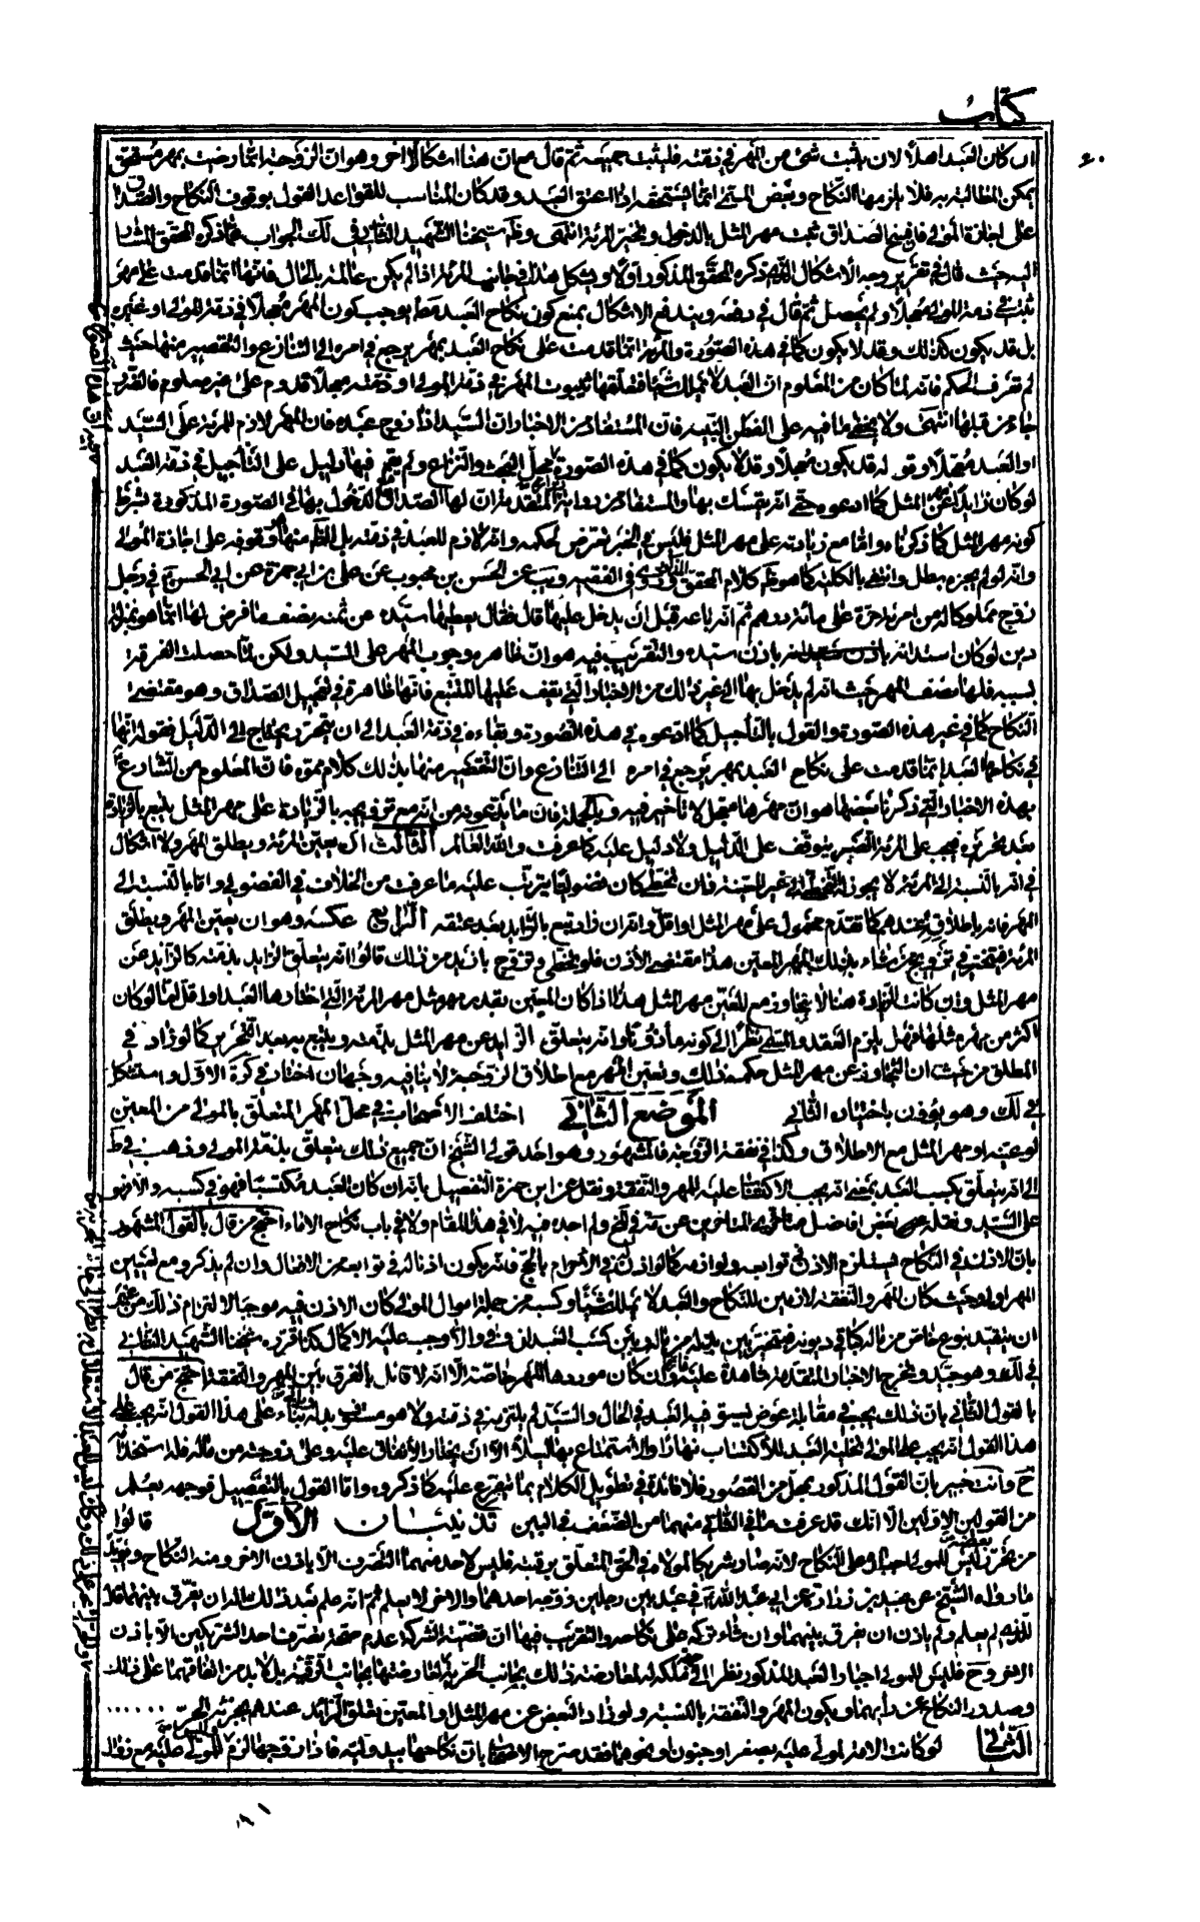 كتاب
٤٠
ان كان العبد اهلا لان يثبت شئ من المهر في ذمته فليثبت جميعه ثم قال مع ان هنا اشكالا اخر وهو ان الزوجة انما رضيت بمهر مستحق
يمكن المطالبة به فلا يلزمها النكاح وبعض المسمى انما يستحقه اذا اعتق العبد وقد كان المناسب للقواعد القول بوقوف النكاح والصداق
على اجازة المولى فان فسخ الصداق ثبت مهر المثل بالدخول وتخير المرئة انتهى وظاهر شيخنا الشهيد الثاني في لك الجواب عما ذكره المحقق المشار
اليه حيث قال في تقرير وجه الاشكال الذي ذكره المحقق المذكور اولا ويشكل هذا في جانب المرئة اذا لم يكن عالمة بالحال فانها انما قدمت على مهر
يثبت في ذمة المولى معجلا ولم يحصل ثم قال في دفعه ويندفع الاشكال بمنع كون نكاح العبد مطلقا يوجب كون المهر معجلا في ذمة المولى او غيره
بل قد يكون كذلك وقد لا يكون كما في هذه الصورة والمرئة انما قدمت على نكاح العبد بمهر يرجع في امره الى التنازع والتقصير منها حيث
لم تعرف الحكم فانه لما كان من المعلوم ان العبد لا يملك شيئا فتعلقها بثبوت المهر في ذمة المولى او ذمته معجلا قدوم على غير معلوم فالتقصير
جاء من قبلها انتهى ولا يخفى ما فيه على الفطن النبيه فان المستفاد من الاخبار ان السيد اذا زوج عبده فان المهر لازم للمرئة على السيد
او العبد معجلا وقوله قد يكون معجلا وقد لا يكون كما في هذه الصورة محل البحث والنزاع ولم يقم فيها دليل على التأجيل في ذمة العبد
لو كان زايدا عن مهر المثل كما ادعوه حتى انه يتمسك بها والمستفاد من رواية زرارة المتقدمة ان لها الصداق بالدخول بها في الصورة المذكورة بشرط
كونه مهر المثل كما ذكرناه واما مع زيادته على مهر المثل فليس في الخبر تعرض لحكمه وانه لازم للعبد في ذمته
وانه لو لم يجزه بطل وانتفى بالكلية كما هو ظاهر كلام المحقق الثاني وروى في الفقيه ويب عن الحسن بن محبوب عن علي بن ابي حمزة عن ابي الحسن ع في رجل
زوج مملوكا له من امرئة حرة على مائة درهم ثم انه باعه قبل ان يدخل عليها قال فقال يعطيها سيده من ثمنه نصف ما فرض لها انما هو بمنزلة
دين لو كان استدانه باذن سيده والتقريب فيه هو ان ظاهره وجوب المهر على السيد ولكن لما حصلت الفرقة
بسببه فلها نصف المهر حيث انه لم يدخل بها الى غير ذلك من الاخبار التي يقف عليها المتتبع فانها ظاهرة في تعجيل الصداق وهو مقتضى
النكاح كما في غير هذه الصورة والقول بالتأجيل كما ادعوه في هذه الصورة وبقاءه في ذمة العبد الى ان يتحرر يحتاج الى الدليل فقوله انها
في نكاحها العبد انما قدمت على نكاح العبد بمهر يرجع في امره الى التنازع وان التقصير منها بذلك كلام مموه فان المعلوم من الشارع
بهذه الاخبار التي ذكرنا بعضها هو ان مهرها معجل لا تأخير فيه وبالجملة فان ما يدعونه من انه مع تزويجه بالزيادة على مهر المثل يتبع بالزيادة
بعد تحريره فيجب على المرئة الصبر يتوقف على الدليل ولا دليل عليه كما عرفت والله العالم الثالث ان يعين المرئة ويطلق المهر ولا اشكال
في انه بالنسبة الى المرئة لا يجوز التخطي الى غير المعينة فان تخطى كان فضوليا يترتب عليه ما عرفت من الخلاف في الفضولي واما بالنسبة الى
المهر فانه باطلاقه عندهم كما تقدم محمول على مهر المثل او اقل وانه ان زاد يتبع بالزايد بعد عتقه الرابع عكسه وهو ان يعين المهر ويطلق
المرئة فيتخير في تزويج من شاء بذلك المهر المعين هذا مقتضى الاذن فلو تخطى وتزوج بازيد من ذلك قالوا انه يتعلق الزايد بذمته كالزايد عن
مهر المثل وان كانت الزيادة هنا لا يتجاوز مع المعين مهر المثل هذا اذا كان المعين بقدر مهر مثل المرئة التي اختارها العبد او اقل اما لو كان
اكثر من مهر مثلها فهل يلزم العقد والمسمى نظرا الى كونه مأذونا او انه يتعلق الزايد عن مهر المثل بذمته ويتبع به بعد التحرير كما لو زاد في
المطلق من حيث ان التجاوز عن مهر المثل حكمه ذلك وتعيين المهر مع اطلاق الزوجة لا ينافيه وجهان اختار في كرة الاول واستشكل
في لك وهو يؤذن باختيار الثاني الموضع الثاني اختلف الاصحاب في محل المهر المتعلق بالمولى من المعين
لو عينه او مهر المثل مع الاطلاق وكذا في نفقة الزوجة فالمشهور وهو احد قولي الشيخ ان جميع ذلك يتعلق بذمة المولى وذهب في ط
الى انه يتعلق بكسب العبد بمعنى انه يجب الاكتساب عليه للمهر والنفقة ونقل عن ابن حمزة التفصيل بانه ان كان العبد مكتسبا فهو في كسبه والا فهو
على السيد ونقله بعض افاضل متأخري المتأخرين عن منه في لح ولم اجده فيه لا في هذا المقام ولا في باب نكاح الاماء احتج من قال بالقول المشهور
بان الاذن في النكاح يستلزم الاذن في توابعه ولوازمه كما لو اذن في الاحرام بالحج فانه يكون اذنا له في توابعه من الافعال وان لم يذكر ومع تعيين
المهر اولى وحيث كان المهر والنفقة لازمين للنكاح والعبد لا يملك شيئا وكسبه من جملة اموال المولى كان الاذن فيه موجبا لالتزام ذلك من غير
ان يتقيد بنوع خاص من ماله كباقي ديونه فيتخير بين بذله من ماله وبين كسب العبد ان وفى والا وجب عليه الاكمال كذا قرره شيخنا الشهيد الثاني
في لك وهو جيد ويخرج الاخبار المتقدمة شاهدة عليه وان كان موردها المهر خاصة الا انه لا قائل بالفرق بين المهر والنفقة احتج من قال
بالقول الثاني بان ذلك يجب في مقابلة عوض يستوفيه العبد في الحال والسيد لم يلتزمه في ذمته ولا هو مستوف بدله بناء على هذا القول انه يجب على
هذا القول انه يجب على المولى تخلية العبد للاكتساب نهارا والاستمتاع بها ليلا الا ان يختار الانفاق عليه وعلى زوجته من ماله فله استخدامه
ح وانت خبير بان القول المذكور بمحل من القصور فلا فائدة في تطويل الكلام بما يتفرع عليه كما ذكروه واما القول بالتفصيل فوجهه يعلم
من القولين الاولين الا انك قد عرفت ما في الثاني منهما من الضعف في البين تذنيبان الاول قالوا
من تحرر بعضه ليس للمولى اجباره على النكاح لانه صار شريكا لمولاه في الحق المتعلق برقبته فليس لاحد منهما التصرف الا باذن الاخر ومنه النكاح ويؤيده
ما رواه الشيخ عن عبيد بن زرارة عن ابي عبد الله ع في عبد بين رجلين زوجه احدهما والاخر لا يعلم ثم انه علم بعد ذلك اله ان يفرق بينهما قال
للذي لم يعلم ولم ياذن ان يفرق بينهما وان شاء تركه على نكاحه والتقريب فيها ان قضية الشركة عدم صحة تصرف احد الشريكين الا باذن
الاخر وح فليس للمولى اجبار العبد المذكور نظرا الى تملكه له لمعارضة ذلك بجانب الحرية لمعارضتها بجانب الرقية بل لا بد من اتفاقهما على ذلك
وصدور النكاح عن رأيهما ويكون المهر والنفقة بالنسبة ولو زاد البعض عن مهر المثل او المعين تعلق الزائد عندهم بجزئه الحر ......
الثاني لو كانت الامة لمولى عليه بصغر او جنون او نحوهما فقد صرح الاصحاب بان نكاحها بيد وليه فاذا زوجها لزم للمولى عليه مع زوال